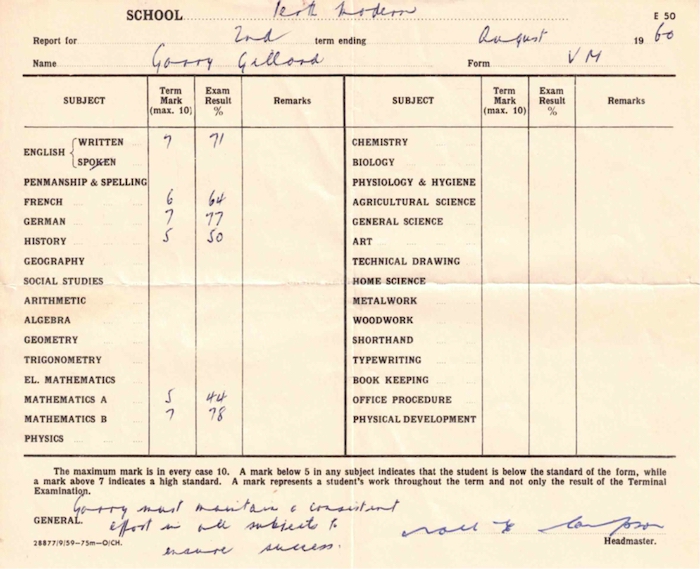 SCHOOL Perth Modern E 50
Report for 2nd term ending August 19 60
Name Garry Gillard Form V M
SUBJECT Term Mark (max. 10) Exam Result % Remarks SUBJECT Term Mark (max. 10) Exam Result % Remarks
ENGLISH { WRITTEN 7 71 CHEMISTRY
SPOKEN BIOLOGY
PENMANSHIP & SPELLING PHYSIOLOGY & HYGIENE
FRENCH 6 64 AGRICULTURAL SCIENCE
GERMAN 7 77 GENERAL SCIENCE
HISTORY 5 50 ART
GEOGRAPHY TECHNICAL DRAWING
SOCIAL STUDIES HOME SCIENCE
ARITHMETIC METALWORK
ALGEBRA WOODWORK
GEOMETRY SHORTHAND
TRIGONOMETRY TYPEWRITING
EL. MATHEMATICS BOOK KEEPING
MATHEMATICS A 5 44 OFFICE PROCEDURE
MATHEMATICS B 7 78 PHYSICAL DEVELOPMENT
PHYSICS
The maximum mark is in every case 10. A mark below 5 in any subject indicates that the student is below the standard of the form, while
a mark above 7 indicates a high standard. A mark represents a student's work throughout the term and not only the result of the Terminal
Examination.
Garry must maintain a consistent
GENERAL. effort in all subjects to
ensure success.
Headmaster.
28877/9/59—75m—O/CH.